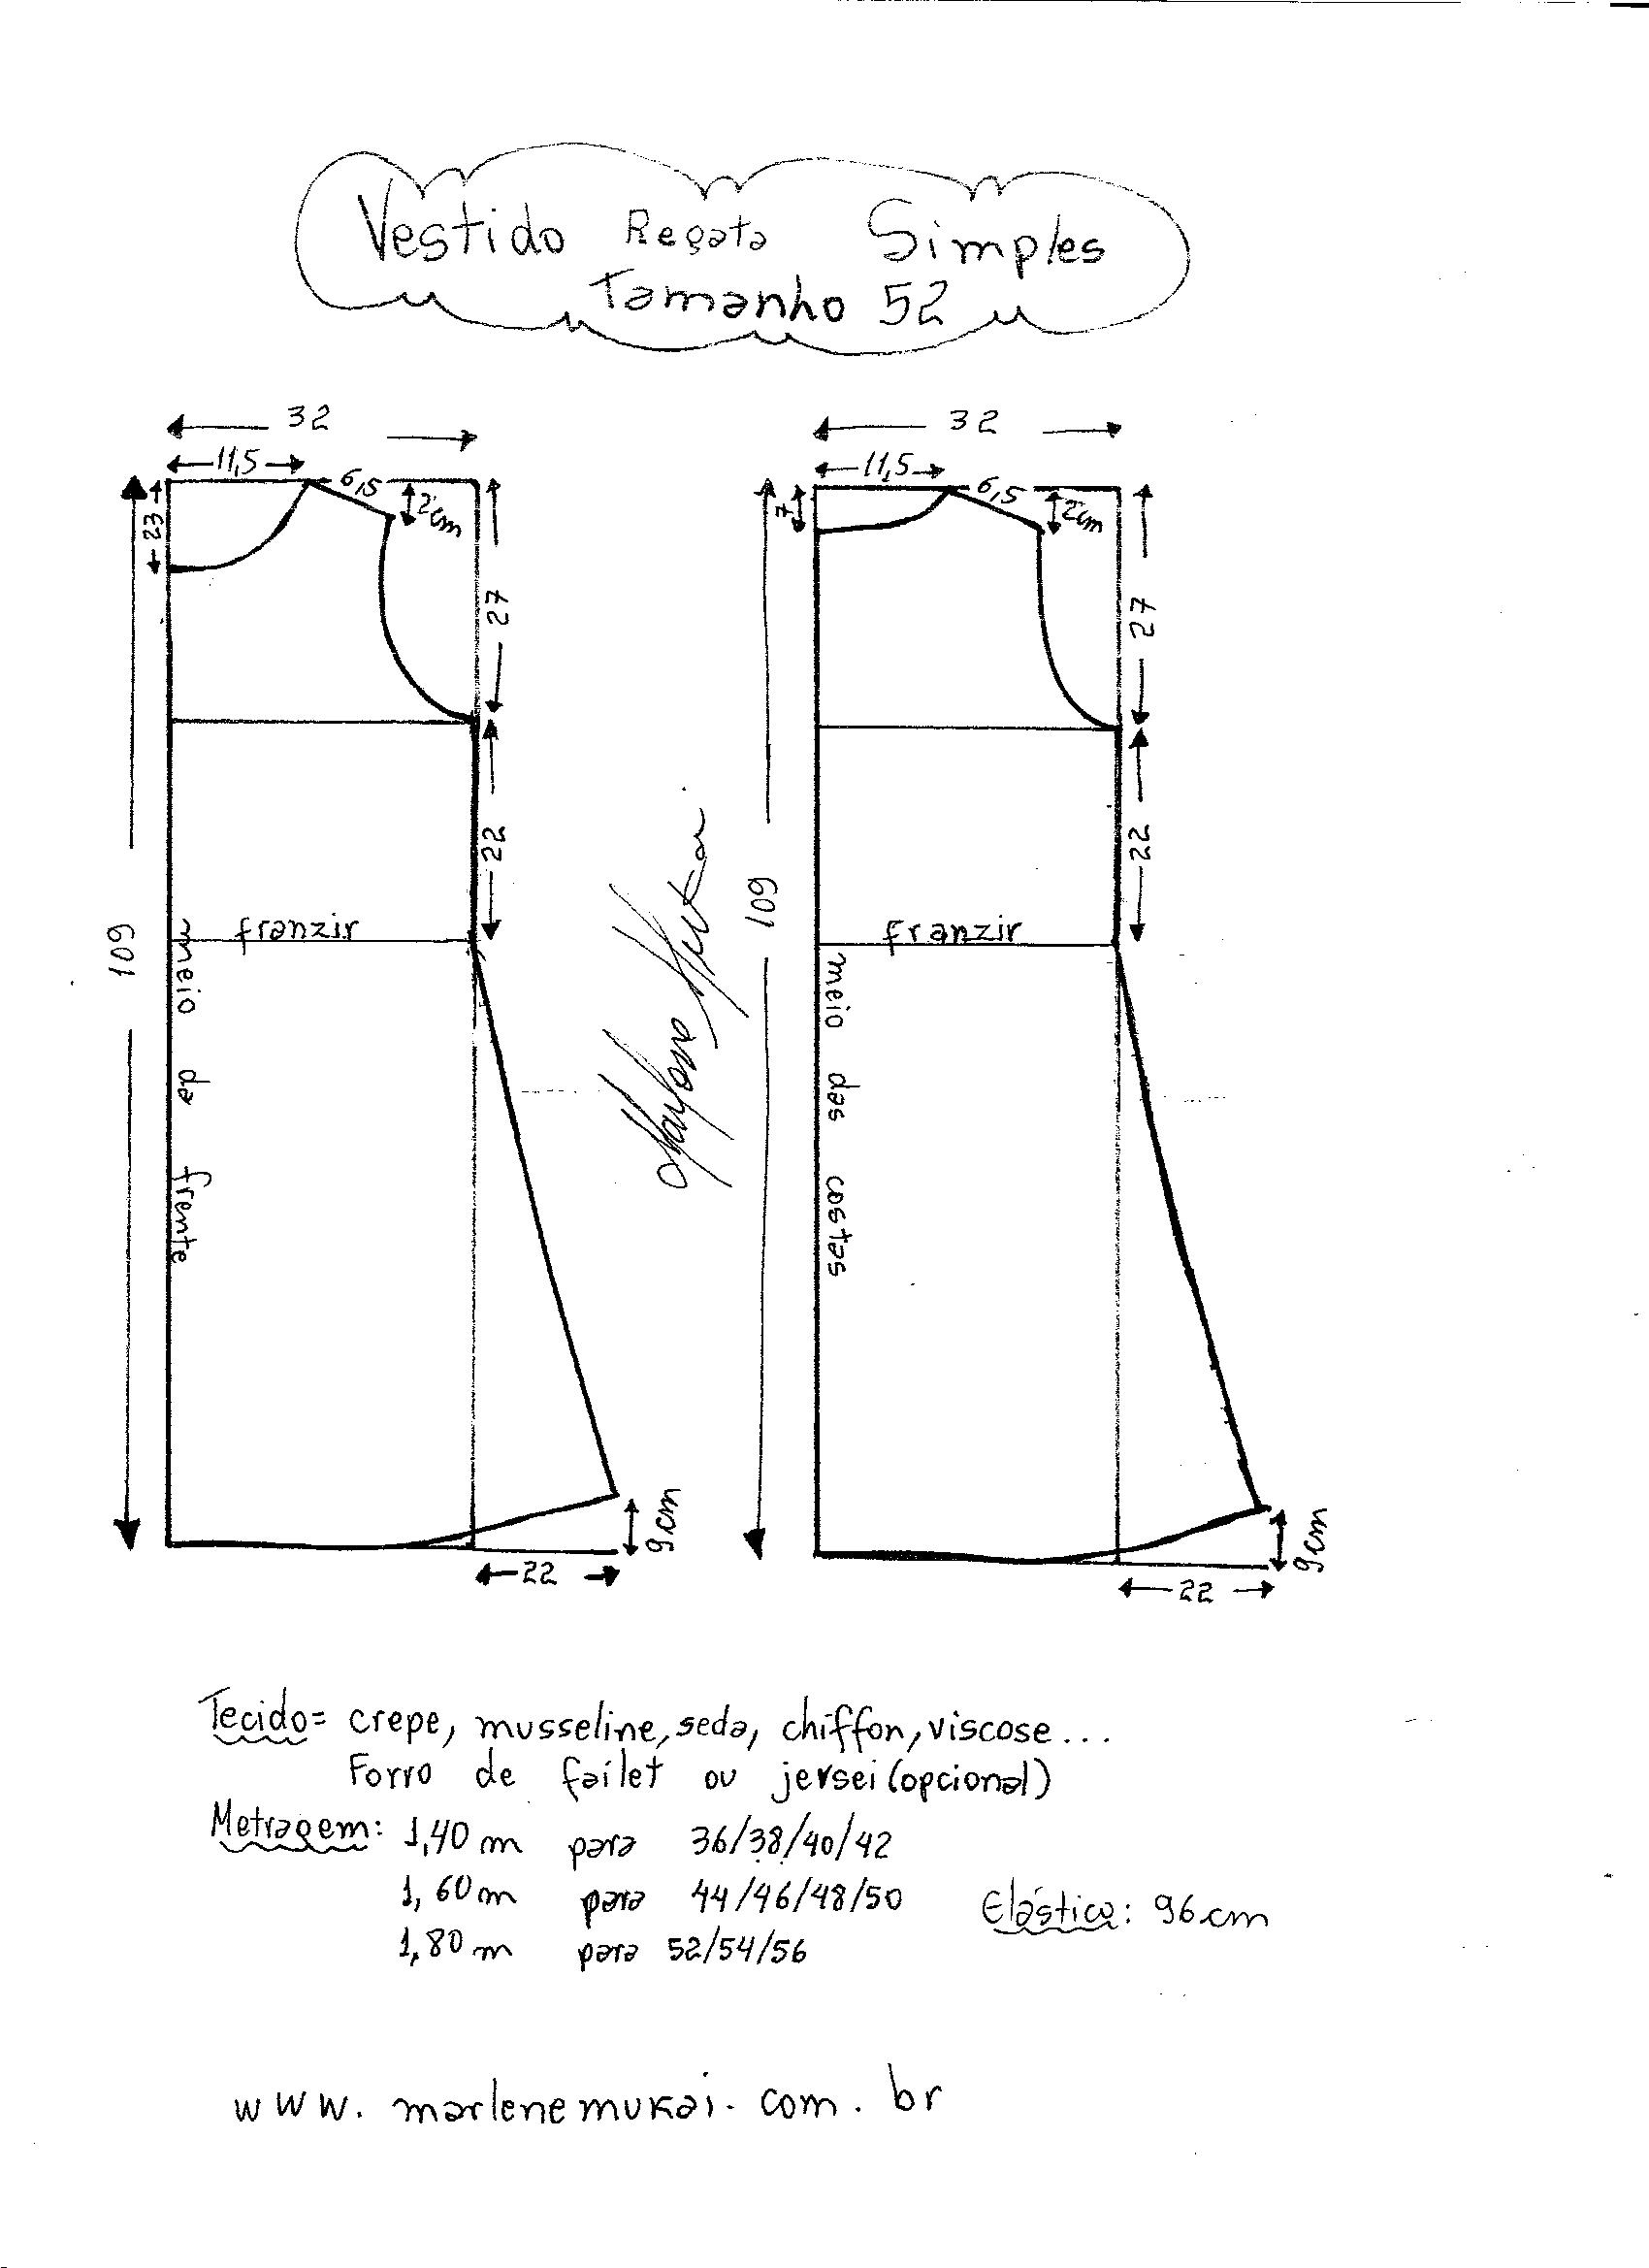 Vestido Regata Simples
Tamanho 52
32
11,5
6,5
2cm
23
27
22
109
franzir
meio da frente
9cm
22
32
11,5
6,5
2cm
7
27
22
109
franzir
meio das costas
9cm
22
Tecido= crepe, musseline, seda, chiffon, viscose...
Forro de failet ou jersei (opcional)
Metragem: 1,40 m para 36/38/40/42
1,60m para 44/46/48/50
Elástico: 96cm
1,80 m para 52/54/56
www.marlenemukai.com.br